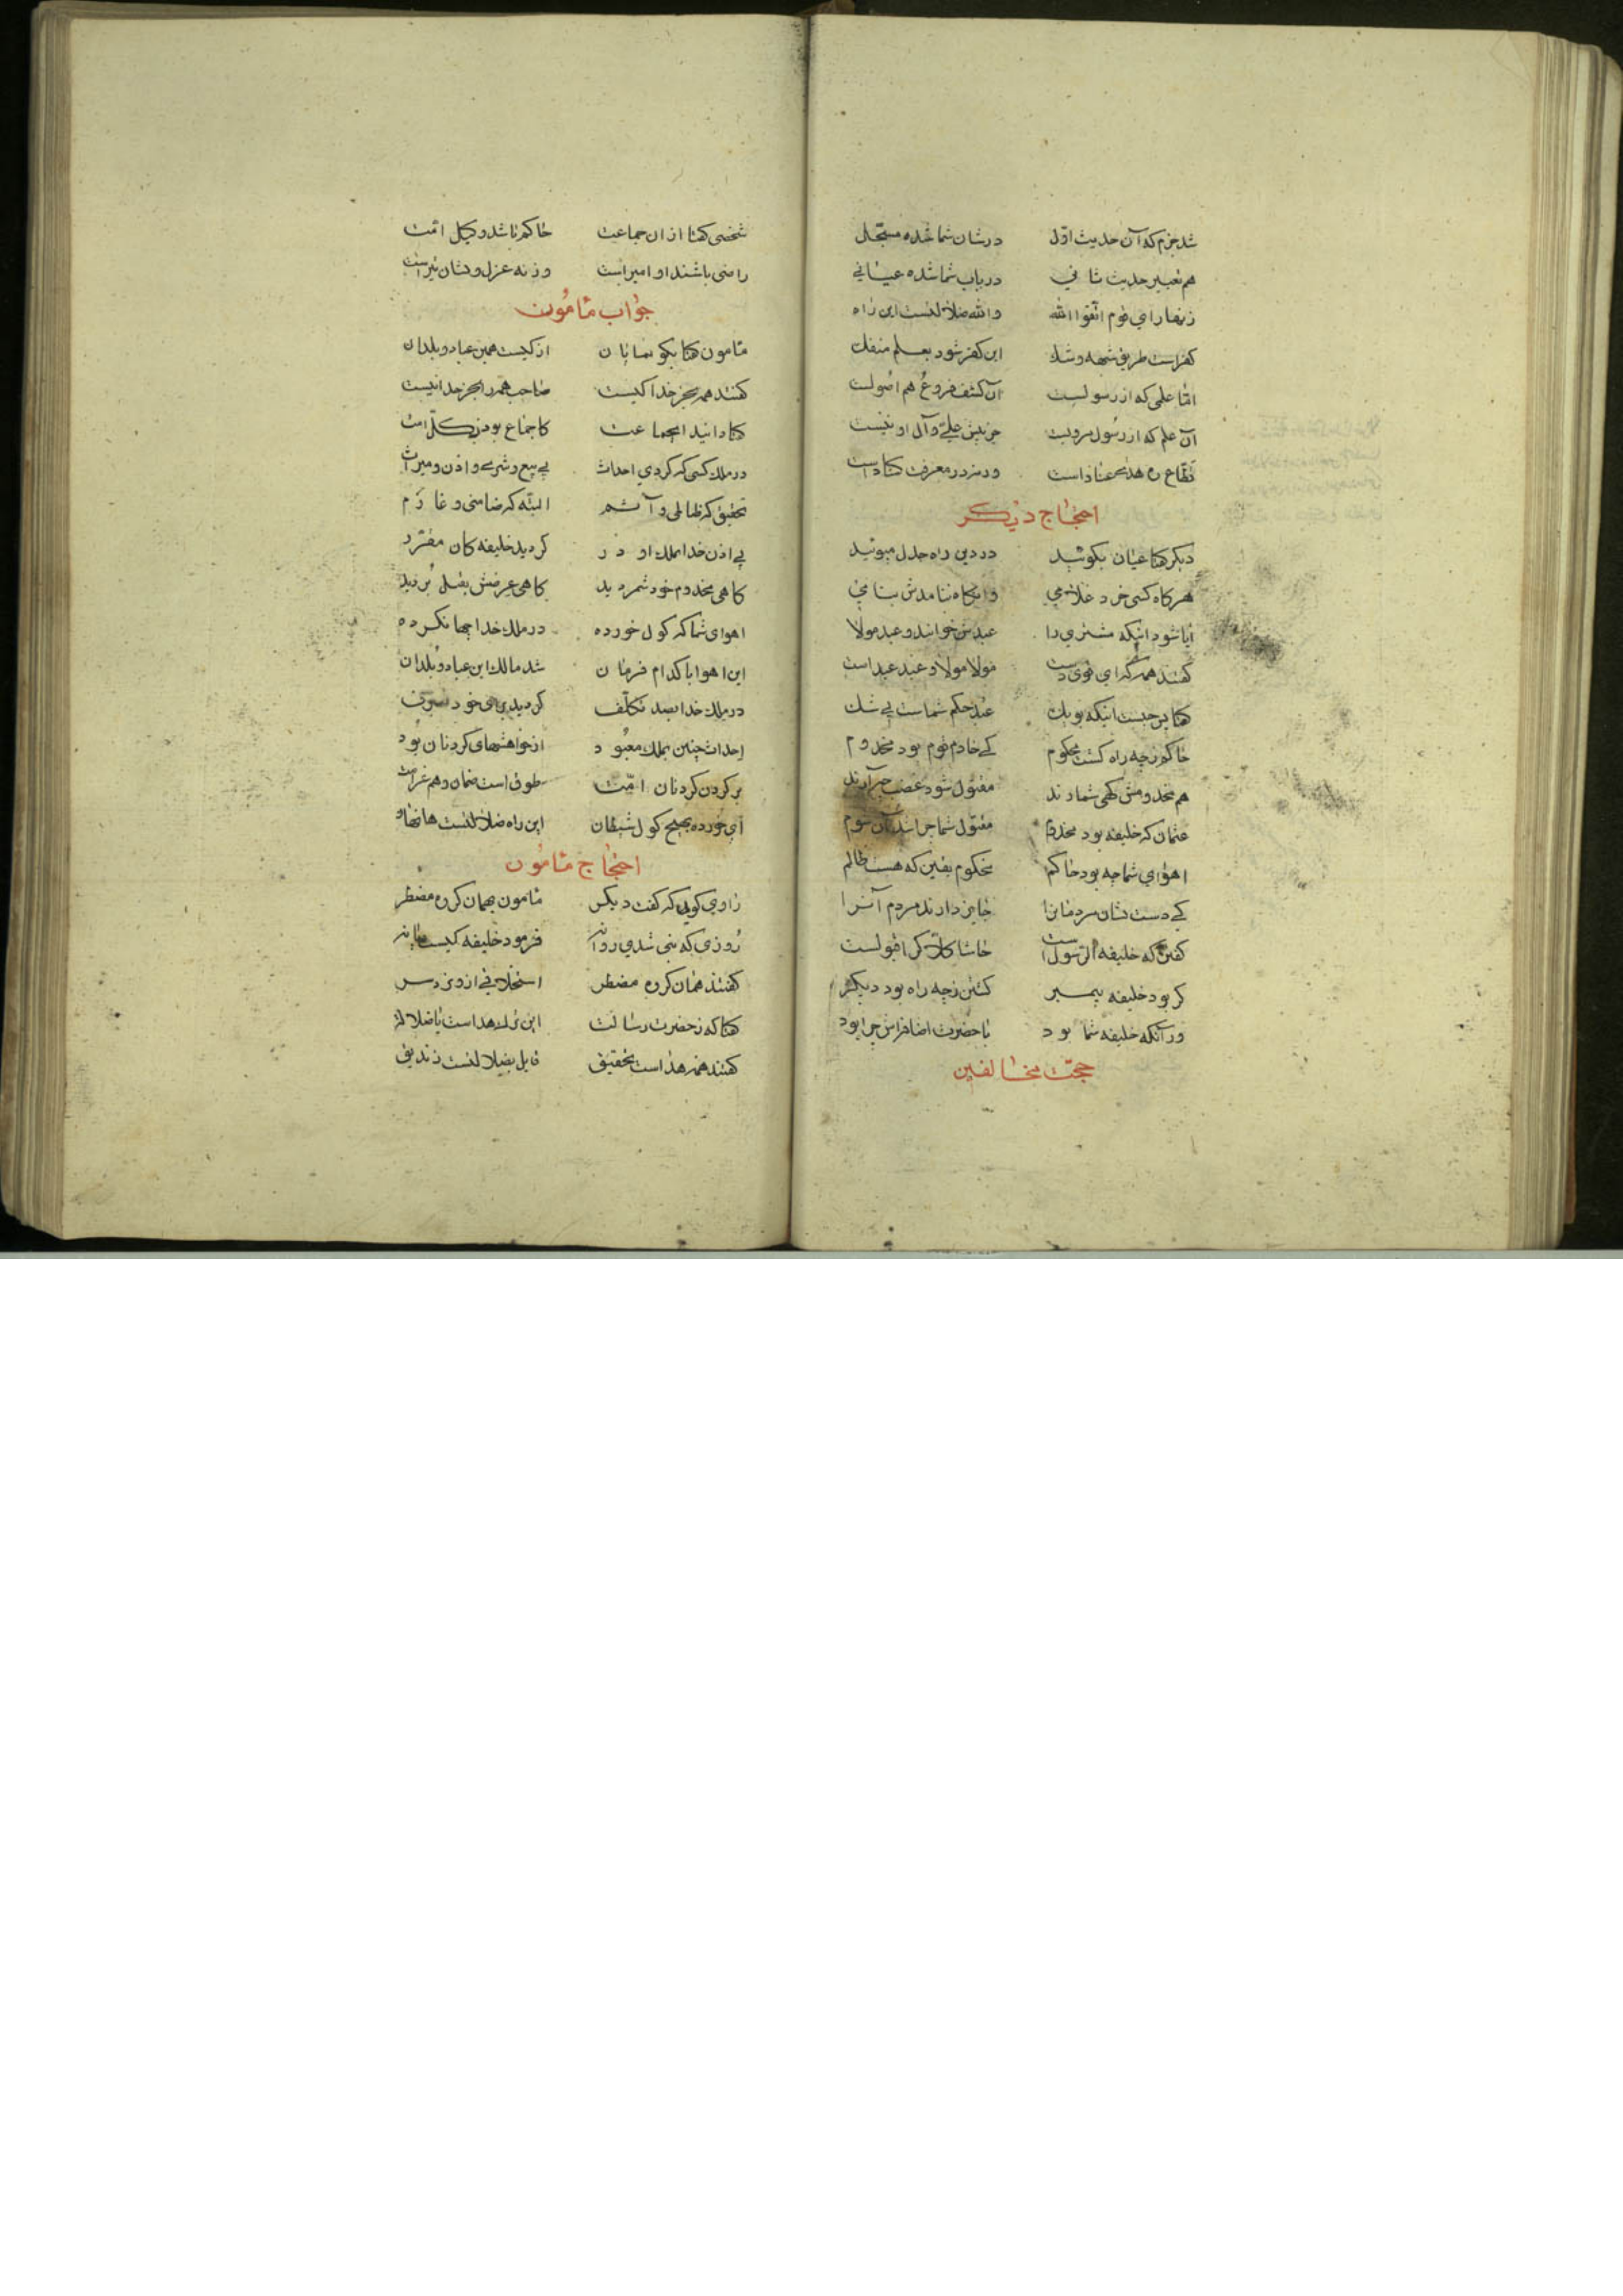 شد جزم که آن حدیث اوّل در شان شما شده مسجّل
هم تعبیر حدیث ثانی در باب شما شده عیانی
زنهار ای قوم اتّقوا الله والله ضلالتست این راه
کفر است طریق شبهه و شك این کفر شود بعلم منفك
امّا علمی که از رسولست آن کشف فروع هم اصولست
آن علم که از رسول مرویست جز پیش علی و آل او نیست
در معرفت
احتجاج دیکر
دیکر کفتا عیان بکوئید در دین راه جدل مپوئید
هرکاه کسی خرد غلامی وانکاه بنامدش بنامی
ایا شود اینکه مشتری را عبدش خوانند و عبد مولا
کفتند همه که ای مولا مولا و عبد عبد است
کفتا پس چیست اینکه بوبك عبد حکم شماست بی شك
حاکم زچه راه کشت محکوم کی خادم قوم بود مخدوم
هم مخدومش کهی شمارند مقتول شود
عثمان که خلیفه بود مخدوم مقتول شما چرا شد آن شوم
اهوای شما چه بود حاکم محکوم یقین که هست ظالم
کی دست نشان مردمانرا جایز دارند مردم آنرا
کفتن که خلیفه الرّسول است حاشا کلّا کرا قبولست
کر بود خلیفه پیمبر کشتن زچه راه بود دیکر
ور آنکه خلیفه شما بود با حضرت اضافه‌اش چرا بود
حجّت مخالفین
شخصی کفتا از ان جماعت حاکم باشد وکیل امّت
راضی باشند او امیر است ورنه عزل و نشان
جواب مامون
مامون کفتا بکو از کیست همین عباد و بلدان
کفتند همه بجز خدا کیست صاحب همه را بجز خدا نیست
کفتا دانید ای جماعت کاجماع بود زکلّ امّت
در ملك کسی که کردی احداث بی بیع و شری و اذن و میراث
تحقیق که ظالمی و آثم البتّه که ضامنی و غارم
بی اذن خدا بملك او در کردید خلیفه کان مقرّر
کاهی مخدوم خود شمردید کاهی عرضش بقتل بردید
اهوای شما که کول خورده در ملك خدا چها نکرده
این اهوا با کدام فرمان شد مالك این عباد و بلدان
در ملك خدا بصد تکلّف کردید برای خود تصرّف
احداث چنین بملك معبود از خواهشهای کردنان بود
بر کردن کردنان امّت طوق است ضمان و هم غرامت
ای خورده کول شیطان این راه ضلالتست
احتجاج مامون
راوی کوید که کفت دیکر مامون بهمان کروه مضطر
روزی که نبی شدی روانه فرمود خلیفه کیست یا نه
کفتند همان کروه مضطر استخلافی از او نزد سر
کفتا که زحضرت رسالت این ترك هدا است یا ضلالت
کفتند همه هدا است بتحقیق قایل بضلالتست زندیق